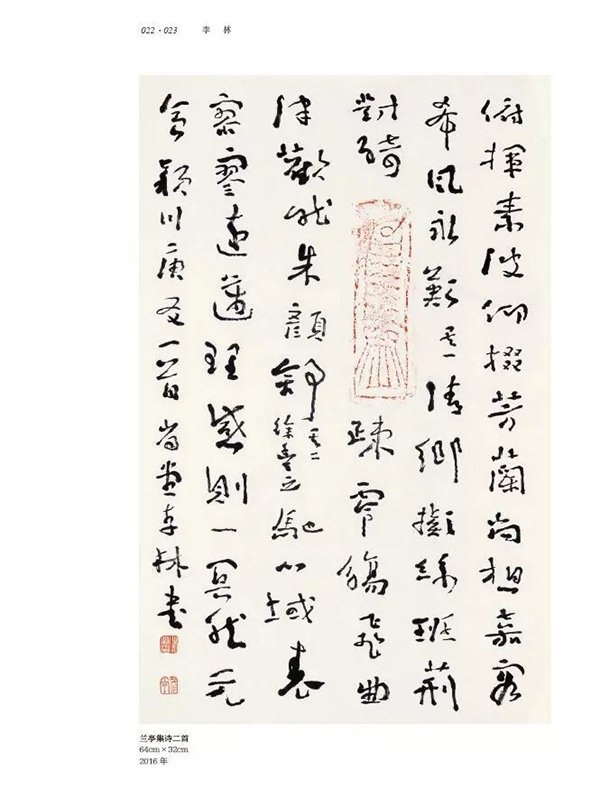 022・023 李 林
俯揮素波仰掇芳蘭尚想嘉客
希風永歎其一清鄉擬絲班荆
對綺疎零觴飛曲
津歡然朱顏舒其二徐豐之馳心域表
寥寥遠邁理感則一冥然元
會潁川庾友一首尚李林書
兰亭集诗二首
64cm×32cm
2016 年